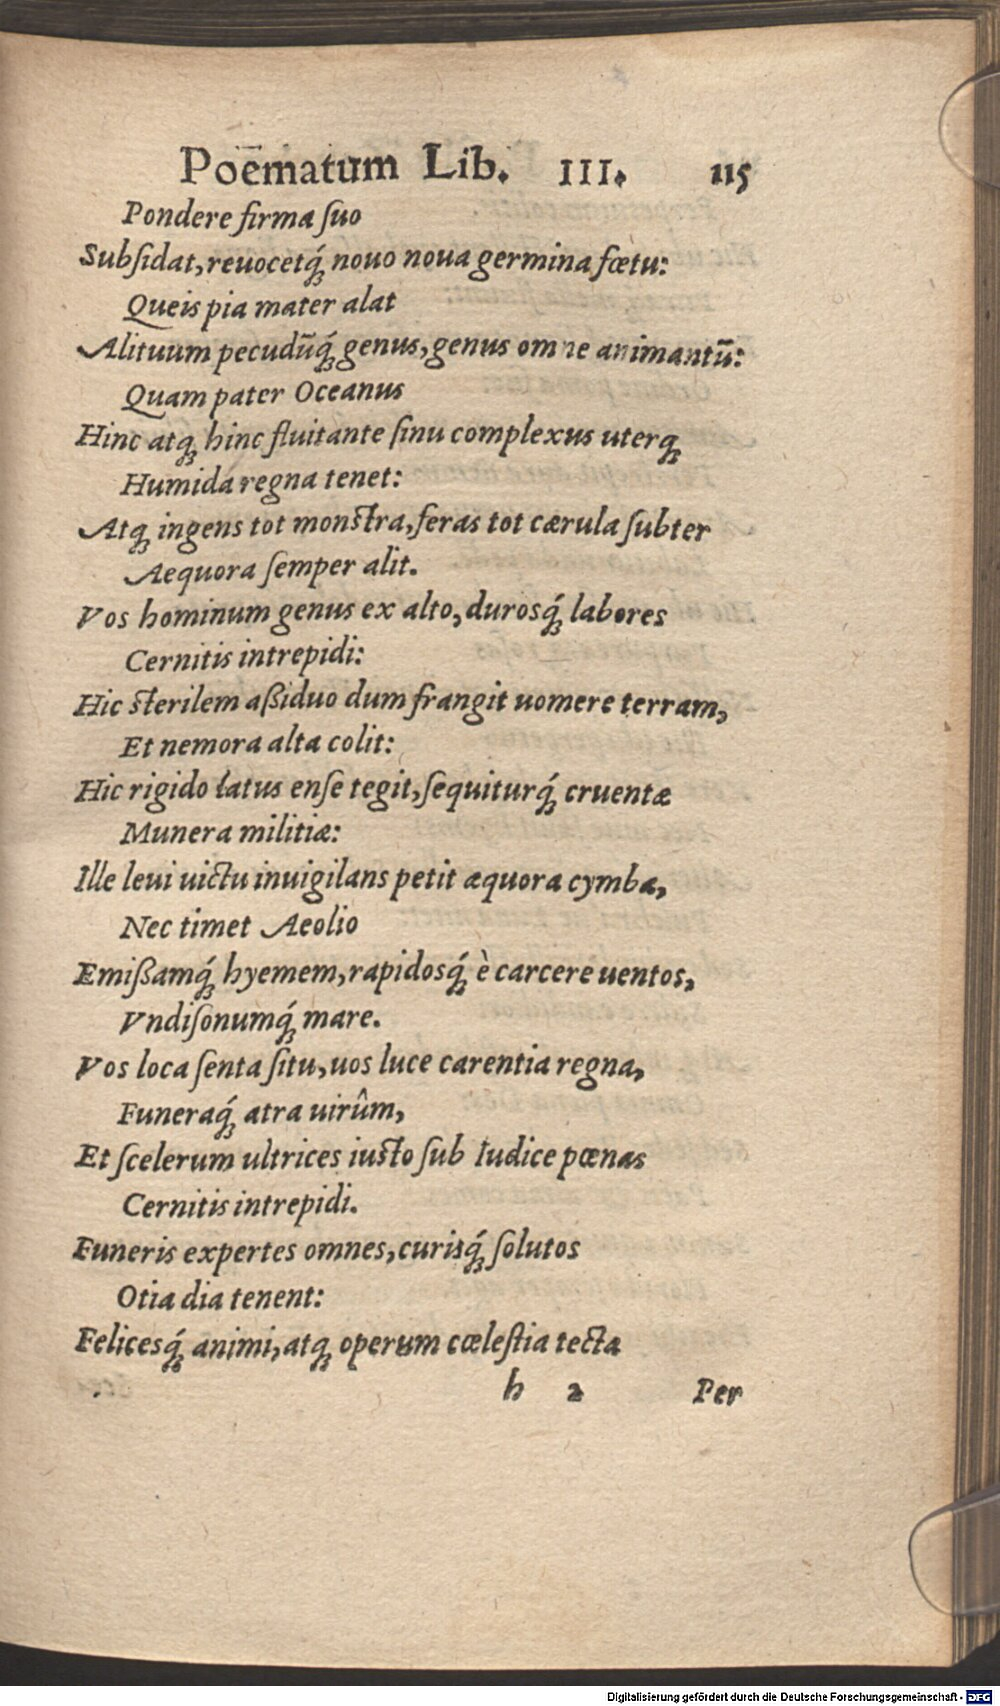 Poëmatum Lib. III. 115
Pondere firma ſuo
Subſidat, reuocetq́; nouo noua germina fœtu:
Queis pia mater alat
Alituum pecudũq́; genus, genus omne animantũ:
Quam pater Oceanus
Hinc atq; hinc fluitante ſinu complexus uterq;
Humida regna tenet:
Atq; ingens tot monſtra, feras tot cærula ſubter
Aequora ſemper alit.
Vos hominum genus ex alto, durosq́; labores
Cernitis intrepidi:
Hic ſterilem aßiduo dum frangit uomere terram,
Et nemora alta colit:
Hic rigido latus enſe tegit, ſequiturq́; cruentæ
Munera militiæ:
Ille leui uictu inuigilans petit æquora cymba,
Nec timet Aeolio
Emißamq́; hyemem, rapidosq́; è carcere uentos,
Vndiſonumq́; mare.
Vos loca ſenta ſitu, uos luce carentia regna,
Funeraq́; atra uirûm,
Et ſcelerum ultrices iuſto ſub Iudice pœnas
Cernitis intrepidi.
Funeris expertes omnes, curisq́; ſolutos
Otia dia tenent:
Felicesq́; animi, atq; operum cœleſtia tecta
h 2 Per
Digitalisierung gefördert durch die Deutsche Forschungsgemeinschaft - DFG